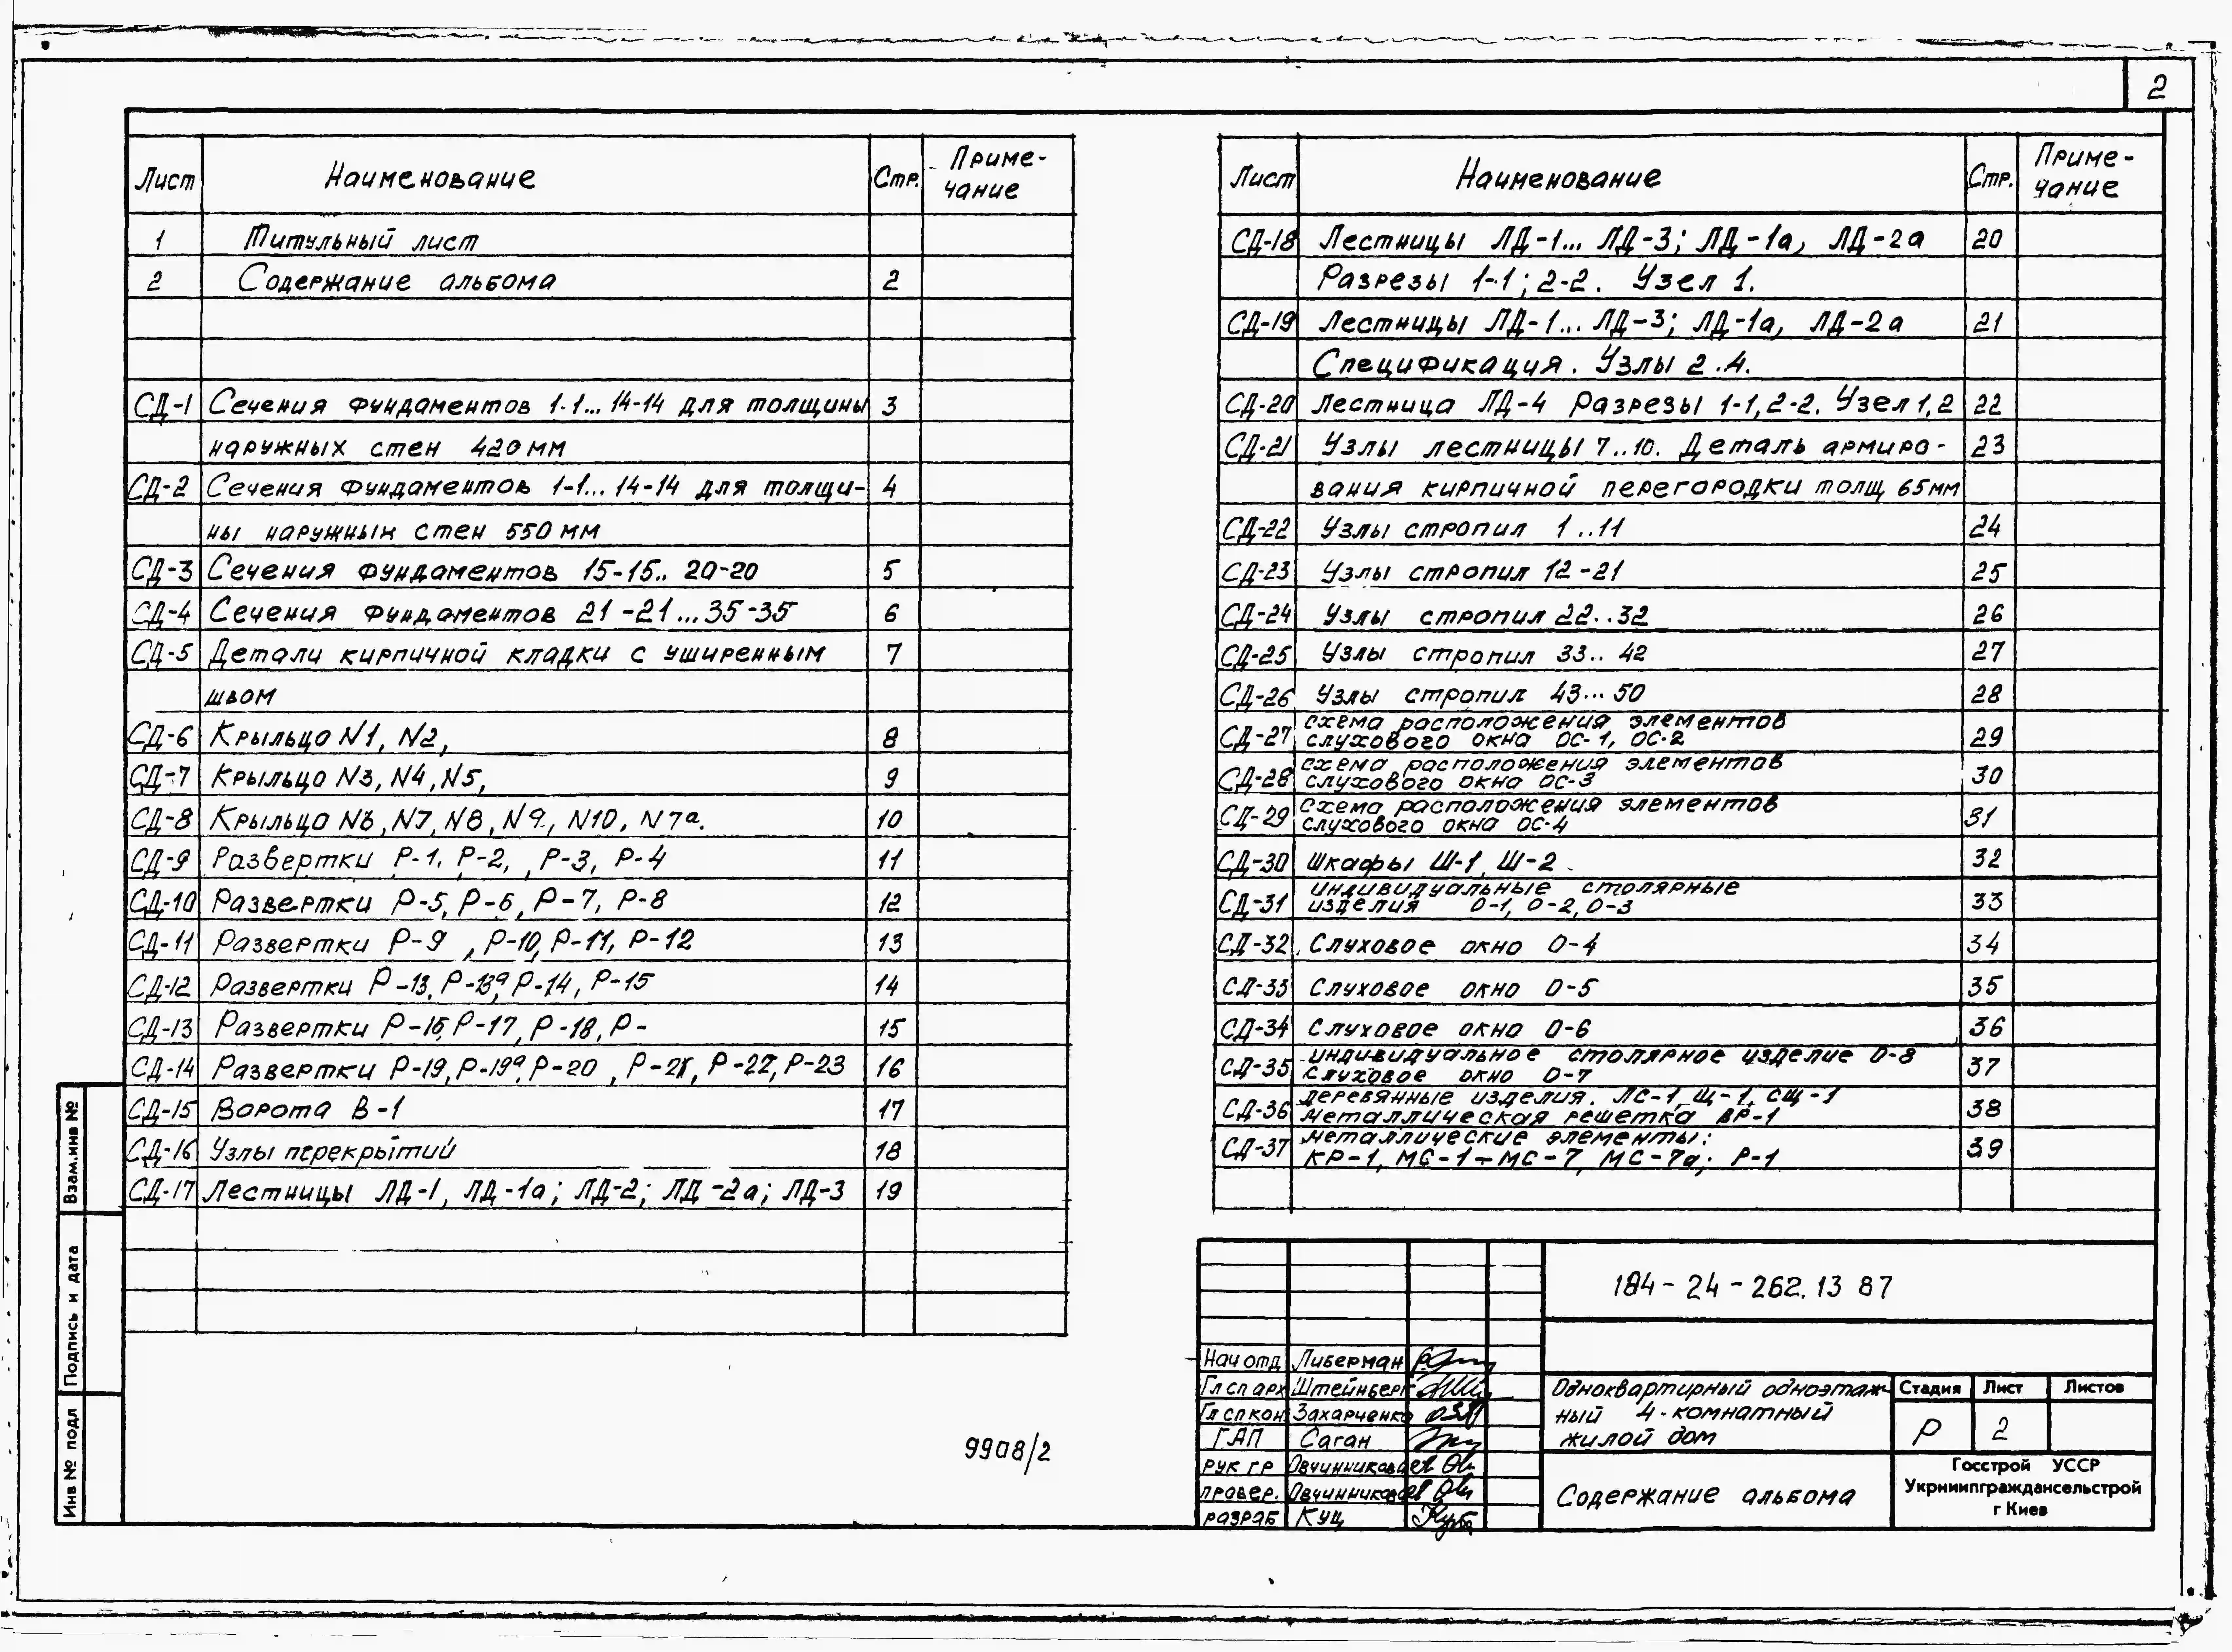 2
Лист Наименование Стр. Приме-
чание
1 Титульный лист
2 Содержание альбома 2
СД-1 Сечения фундаментов 1-1... 14-14 для толщины 3
наружных стен 420 мм
СД-2 Сечения фундаментов 1-1... 14-14 для толщи- 4
ны наружных стен 550 мм
СД-3 Сечения фундаментов 15-15.. 20-20 5
СД-4 Сечения фундаментов 21-21...35-35 6
СД-5 Детали кирпичной кладки с уширенным 7
швом
СД-6 Крыльцо N1, N2, 8
СД-7 Крыльцо N3, N4, N5, 9
СД-8 Крыльцо N6, N7, N8, N9, N10, N7а. 10
СД-9 Развертки Р-1, Р-2, Р-3, Р-4 11
СД-10 Развертки Р-5, Р-6, Р-7, Р-8 12
СД-11 Развертки Р-9, Р-10, Р-11, Р-12 13
СД-12 Развертки Р-13, Р-13а, Р-14, Р-15 14
СД-13 Развертки Р-16, Р-17, Р-18, Р- 15
СД-14 Развертки Р-19, Р-19а, Р-20, Р-21, Р-22, Р-23 16
СД-15 Ворота В-1 17
СД-16 Узлы перекрытий 18
СД-17 Лестницы ЛД-1, ЛД-1а; ЛД-2; ЛД-2а; ЛД-3 19
Лист Наименование Стр. Приме-
чание
СД-18 Лестницы ЛД-1... ЛД-3; ЛД-1а, ЛД-2а 20
Разрезы 1-1; 2-2. Узел 1.
СД-19 Лестницы ЛД-1... ЛД-3; ЛД-1а, ЛД-2а 21
Спецификация. Узлы 2..4.
СД-20 Лестница ЛД-4 Разрезы 1-1, 2-2. Узел 1,2 22
СД-21 Узлы лестницы 7..10. Деталь армиро- 23
вания кирпичной перегородки толщ 65мм
СД-22 Узлы стропил 1..11 24
СД-23 Узлы стропил 12-21 25
СД-24 Узлы стропил 22..32 26
СД-25 Узлы стропил 33..42 27
СД-26 Узлы стропил 43...50 28
СД-27 схема расположения элементов
слухового окна ОС-1, ОС-2 29
СД-28 схема расположения элементов
слухового окна ОС-3 30
СД-29 схема расположения элементов
слухового окна ОС-4 31
СД-30 Шкафы Ш-1, Ш-2 32
СД-31 индивидуальные столярные
изделия О-1, О-2, О-3 33
СД-32 Слуховое окно О-4 34
СД-33 Слуховое окно О-5 35
СД-34 Слуховое окно О-6 36
СД-35 индивидуальное столярное изделие О-8
Слуховое окно О-7 37
СД-36 деревянные изделия. ЛС-1, Щ-1, СЩ-1
металлическая решетка ВР-1 38
СД-37 металлические элементы:
КР-1, МС-1÷МС-7, МС-7а; Р-1 39
Взам.инв №
Подпись и дата
Инв № подл
9908/2
184-24-262.13 87
Нач отд Либерман
Гл сп арх Штейнберг
Гл сп кон. Захарченко
ГАП Саган
рук гр Овчинникова
провер. Овчинникова
разраб Куц
Одноквартирный одноэтаж-
ный 4-комнатный
жилой дом
Стадия Лист Листов
Р 2
Содержание альбома
Госстрой УССР
Укрниипграждансельстрой
г Киев